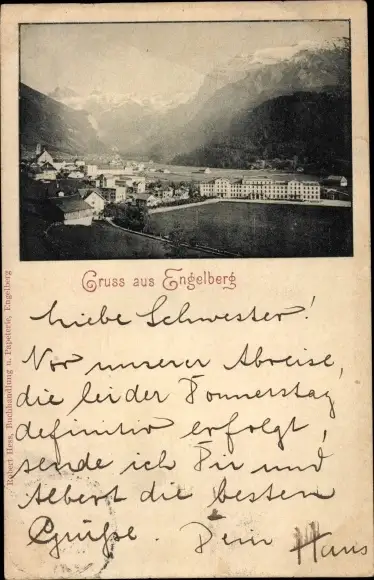 Gruss aus Engelberg
Robert Hess, Buchhandlung u. Papeterie, Engelberg
Liebe Schwester!
Vor unserer Abreise,
die leider Donnerstag
definitiv erfolgt,
sende ich Dir und
Albert die besten
Grüße. Dein Hans